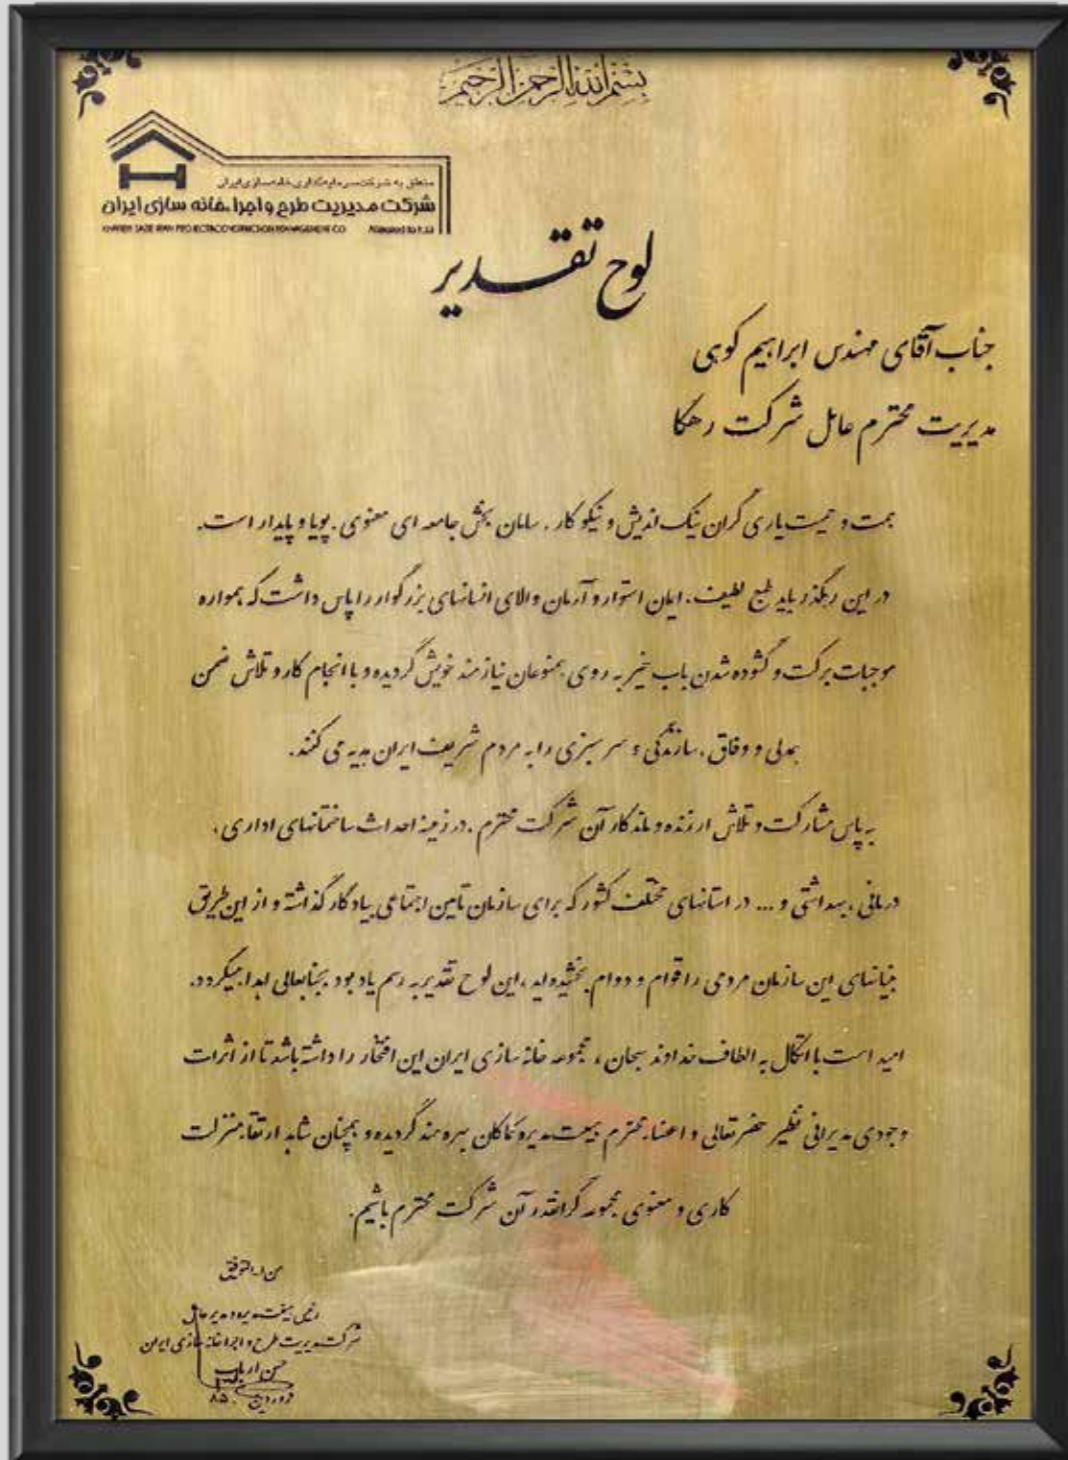 بسم الله الرحمن الرحیم
متعلق به شرکت سرمایه‌گذاری خانه‌سازی ایران
شرکت مدیریت طرح و اجرا، خانه سازی ایران
لوح تقدیر
جناب آقای مهندس ابراهیم کوهی
مدیریت محترم عامل شرکت رهگا
همت و حمیت یاری گران نیک اندیش و نیکوکار، سامان بخش جامعه ای معنوی، پویا و پایدار است.
در این رهگذر باید طبع لطیف، ایمان استوار و آرمان والای انسانهای بزرگوار را پاس داشت که همواره
موجبات برکت و گشوده شدن باب خیر به روی همنوعان نیازمند خویش گردیده و با انجام کار و تلاش ضمن
همدلی و وفاق، سازندگی و سرسبزی را به مردم شریف ایران هدیه می کنند.
به پاس مشارکت و تلاش ارزنده و ماندگار آن شرکت محترم، در زمینه احداث ساختمانهای اداری،
درمانی، بهداشتی و ... در استانهای مختلف کشور که برای سازمان تامین اجتماعی بیادگار گذاشته و از این طریق
بنیانهای این سازمان مردمی را قوام و دوام بخشیده‌اید، این لوح تقدیر به رسم یادبود بجنابعالی اهداء میگردد.
امید است با اتکال به الطاف خداوند سبحان، مجموعه خانه سازی ایران این افتخار را داشته باشد تا از اثرات
وجودی مدیرانی نظیر حضرتعالی و اعضاء محترم هیئت مدیره کماکان بهره مند گردیده و همچنان شاهد ارتقاء منزلت
کاری و معنوی مجموعه گرانقدر آن شرکت محترم باشیم.
من الله التوفیق
رئیس هیئت مدیره و مدیر عامل
شرکت مدیریت طرح و اجرا خانه سازی ایران
حسن ارباب
فروردین ۸۵